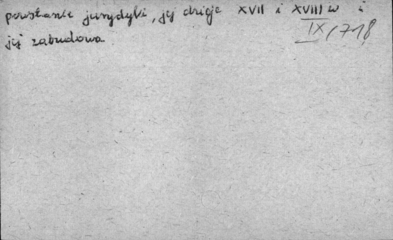 powstanie jurydyki, jej dzieje XVII i XVIII w i
jej zabudowa
IX/718